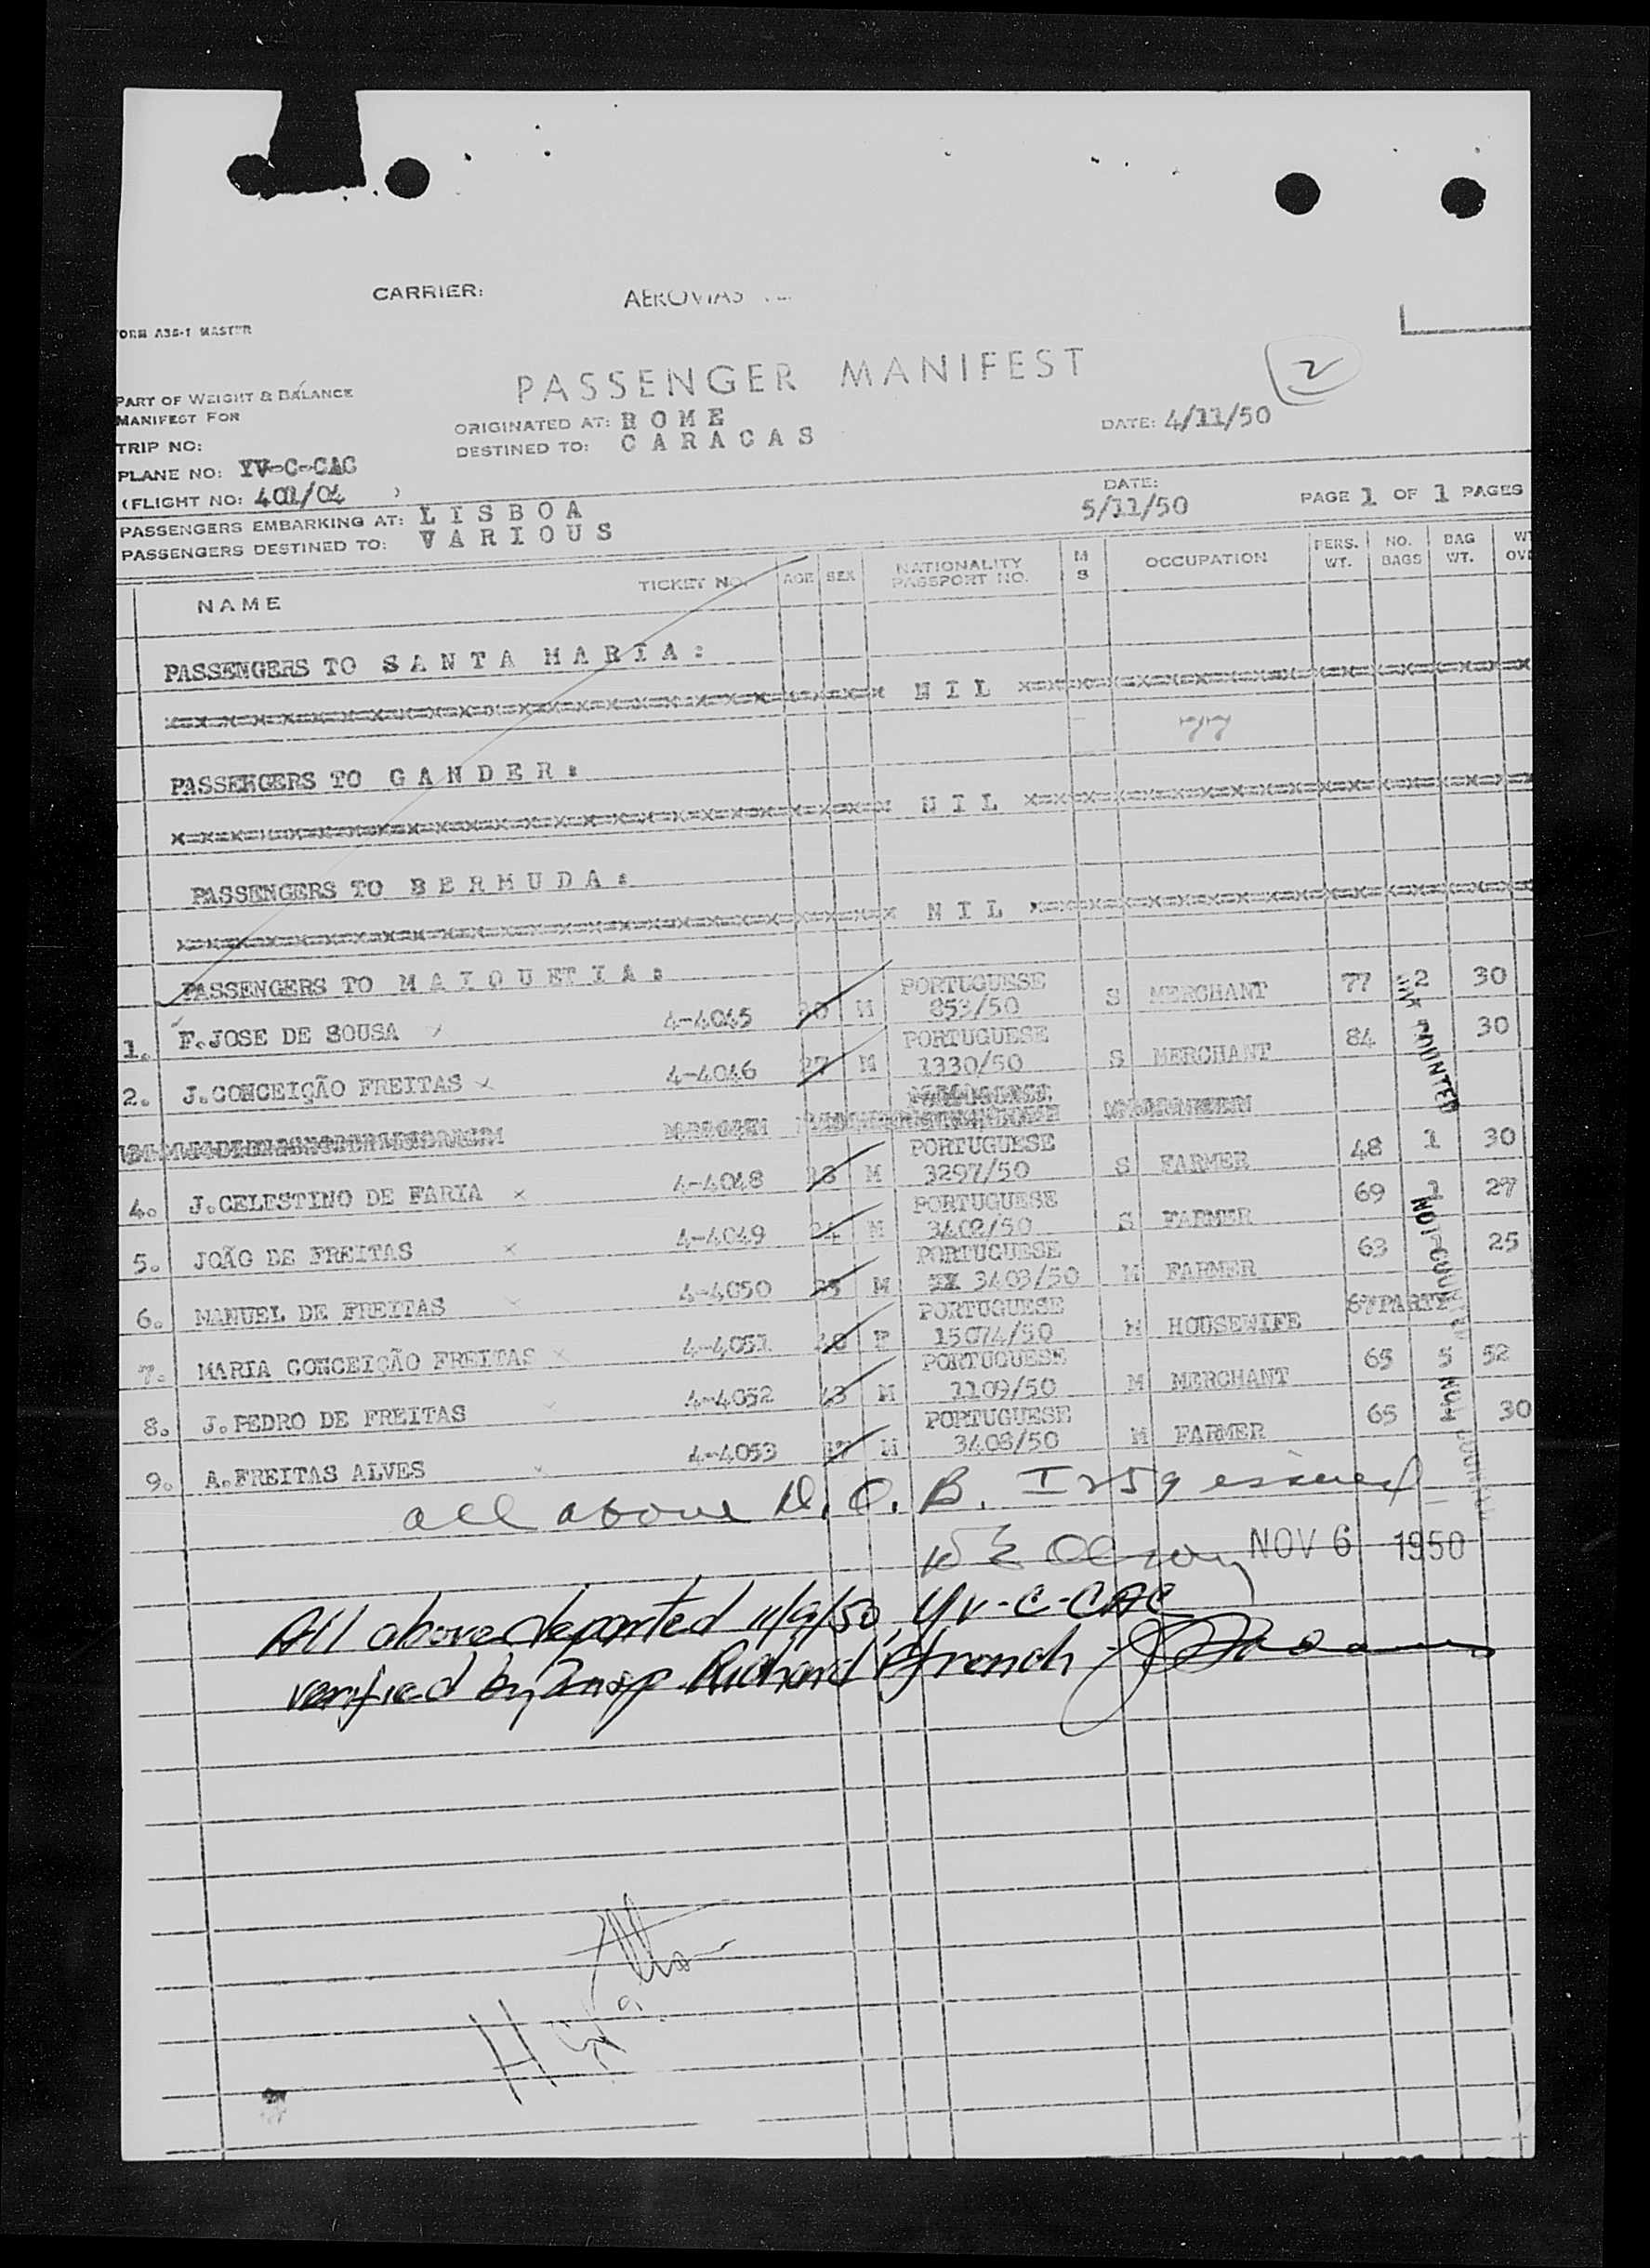 CARRIER: AEROVIAS
FORM A35-1 MASTER
PASSENGER MANIFEST
2
PART OF WEIGHT & BALANCE
MANIFEST FOR
ORIGINATED AT: ROME
DATE: 4/11/50
TRIP NO:
DESTINED TO: CARACAS
PLANE NO: YV-C-CAC
(FLIGHT NO: 401/04 )
DATE:
PASSENGERS EMBARKING AT: LISBOA
5/11/50
PAGE 1 OF 1 PAGES
PASSENGERS DESTINED TO: VARIOUS
NAME TICKET NO. AGE SEX NATIONALITY PASSPORT NO. M S OCCUPATION PERS. WT. NO. BAGS BAG WT.
PASSENGERS TO SANTA MARIA:
NIL
77
PASSENGERS TO GANDER:
NIL
PASSENGERS TO BERMUDA:
NIL
PASSENGERS TO MAIQUETIA:
1. F.JOSE DE SOUSA 4-4045 M PORTUGUESE 853/50 S MERCHANT 77 2 30
2. J.CONCEIÇÃO FREITAS 4-4046 27 M PORTUGUESE 1330/50 S MERCHANT 84 30
4. J.CELESTINO DE FARIA 4-4048 M PORTUGUESE 3297/50 S FARMER 48 1 30
5. JOÃO DE FREITAS 4-4049 M PORTUGUESE 3402/50 S FARMER 69 1 27
6. MANUEL DE FREITAS 4-4050 M PORTUGUESE 3403/50 M FARMER 63 25
7. MARIA CONCEIÇÃO FREITAS 4-4051 40 F PORTUGUESE 15074/50 M HOUSEWIFE 67 PARTY
8. J.PEDRO DE FREITAS 4-4052 43 M PORTUGUESE 1109/50 M MERCHANT 65 5 52
9. A.FREITAS ALVES 4-4053 M PORTUGUESE 3408/50 M FARMER 65 30
NOT COUNTED
all above D.O.B. I 259 issued
NOV 6 1950
All above departed 11/9/50, YV-C-CAC
verified by Insp Richard French